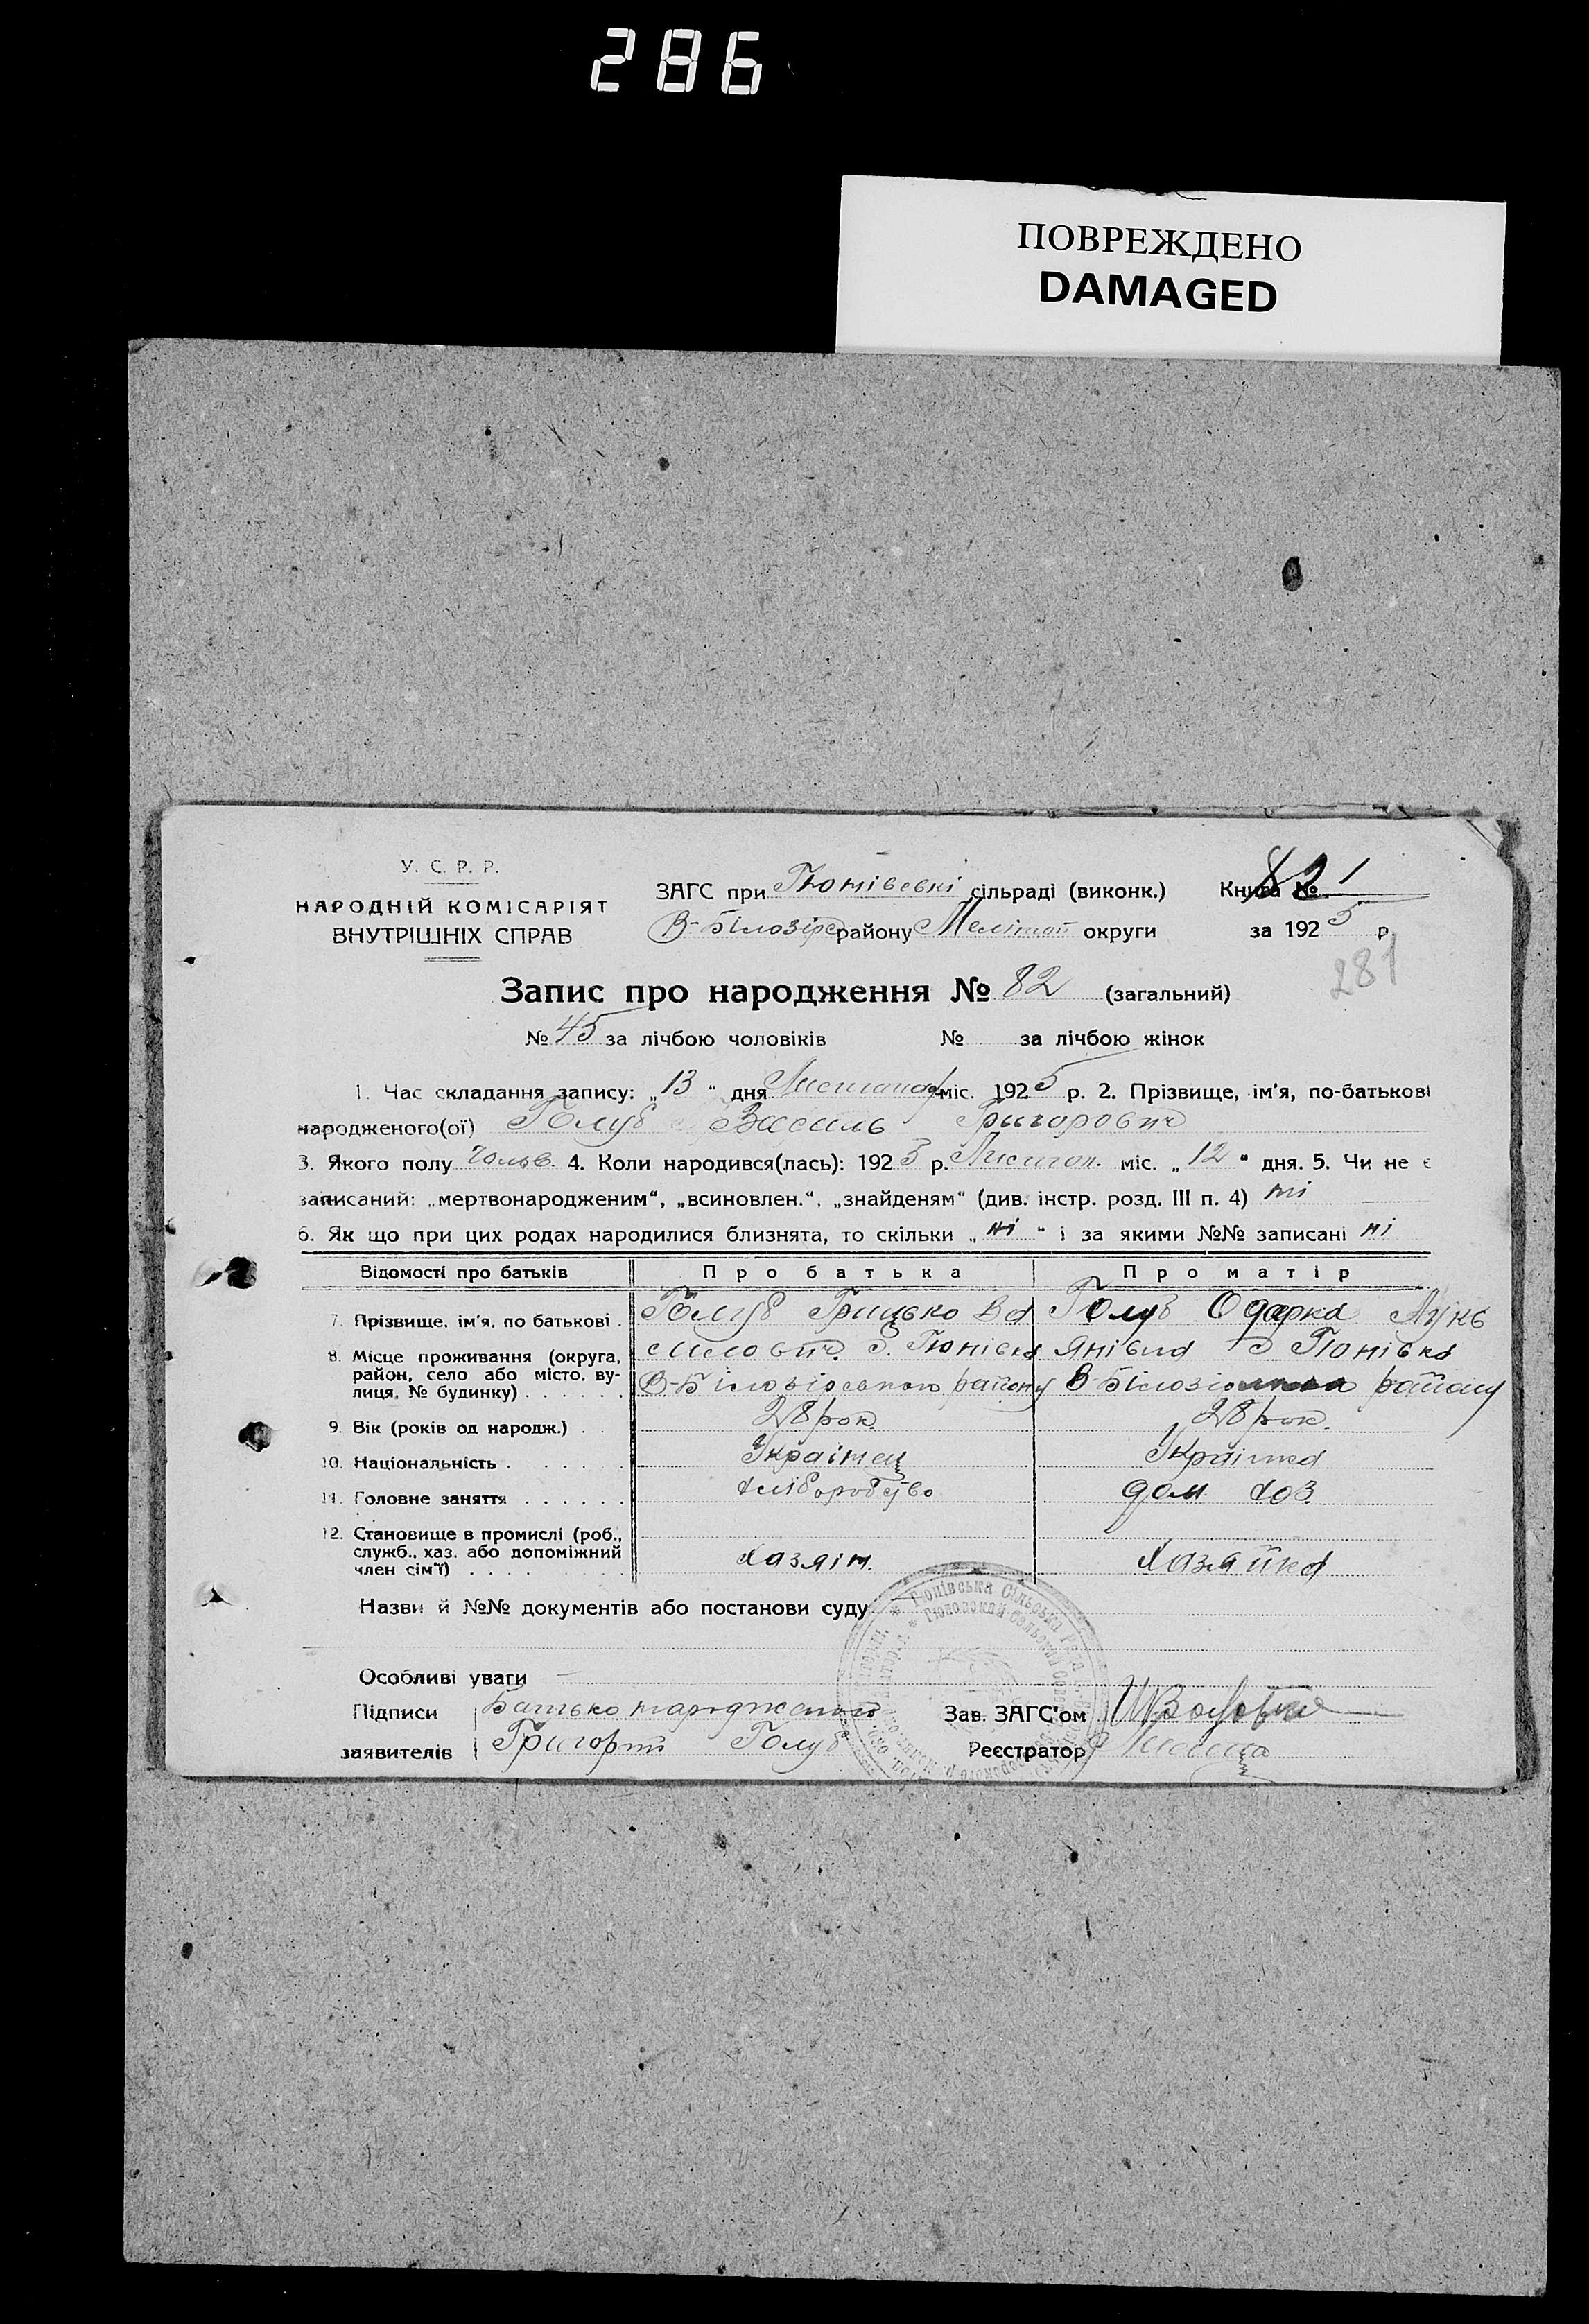 286
ПОВРЕЖДЕНО
DAMAGED
У. С. Р. Р.
НАРОДНІЙ КОМІСАРІЯТ
ВНУТРІШНІХ СПРАВ
ЗАГС при Гюнівські сільраді (виконк.) Книга № 1
В-Білозірс району Меліт. округи за 1925 р.
281
Запис про народження № 82 (загальний)
№ 45 за лічбою чоловіків № за лічбою жінок
1. Час складання запису: „13“ дня Листопад міс. 1925 р. 2. Прізвище, ім'я, по-батькові
народженого(ої) Голуб Василь Григорович
3. Якого полу чолов. 4. Коли народився(лась): 1925 р. Листоп. міс. „12“ дня. 5. Чи не є
записаний: „мертвонародженим“, „всиновлен.“, „знайденям“ (див. інстр. розд. III п. 4) ні
6. Як що при цих родах народилися близнята, то скільки „ні“ і за якими №№ записані ні
Відомості про батьків Про батька Про матір
7. Прізвище, ім'я, по батькові . Голуб Грицько Ва Голуб Одарка Лукь
8. Місце проживання (округа, район, село або місто, вулиця, № будинку) . . . . . . силович с. Гюнівка янівна с Гюнівка
В-Білозірського району В-Білозі району
9. Вік (років од народж.) . . 28 рок. 28 рок.
10. Національність . . . . . . Українец Українка
11. Головне заняття . . . . . . хліборобство дом хоз.
12. Становище в промислі (роб., служб., хаз. або допоміжний член сім'ї) . . . . хазяін. хазяйка
Назви й №№ документів або постанови суду
Гюнівська Сільська Рада
Особливі уваги
Підписи Батько народженого Зав. ЗАГС'ом
заявителів Григорій Голуб Реєстратор